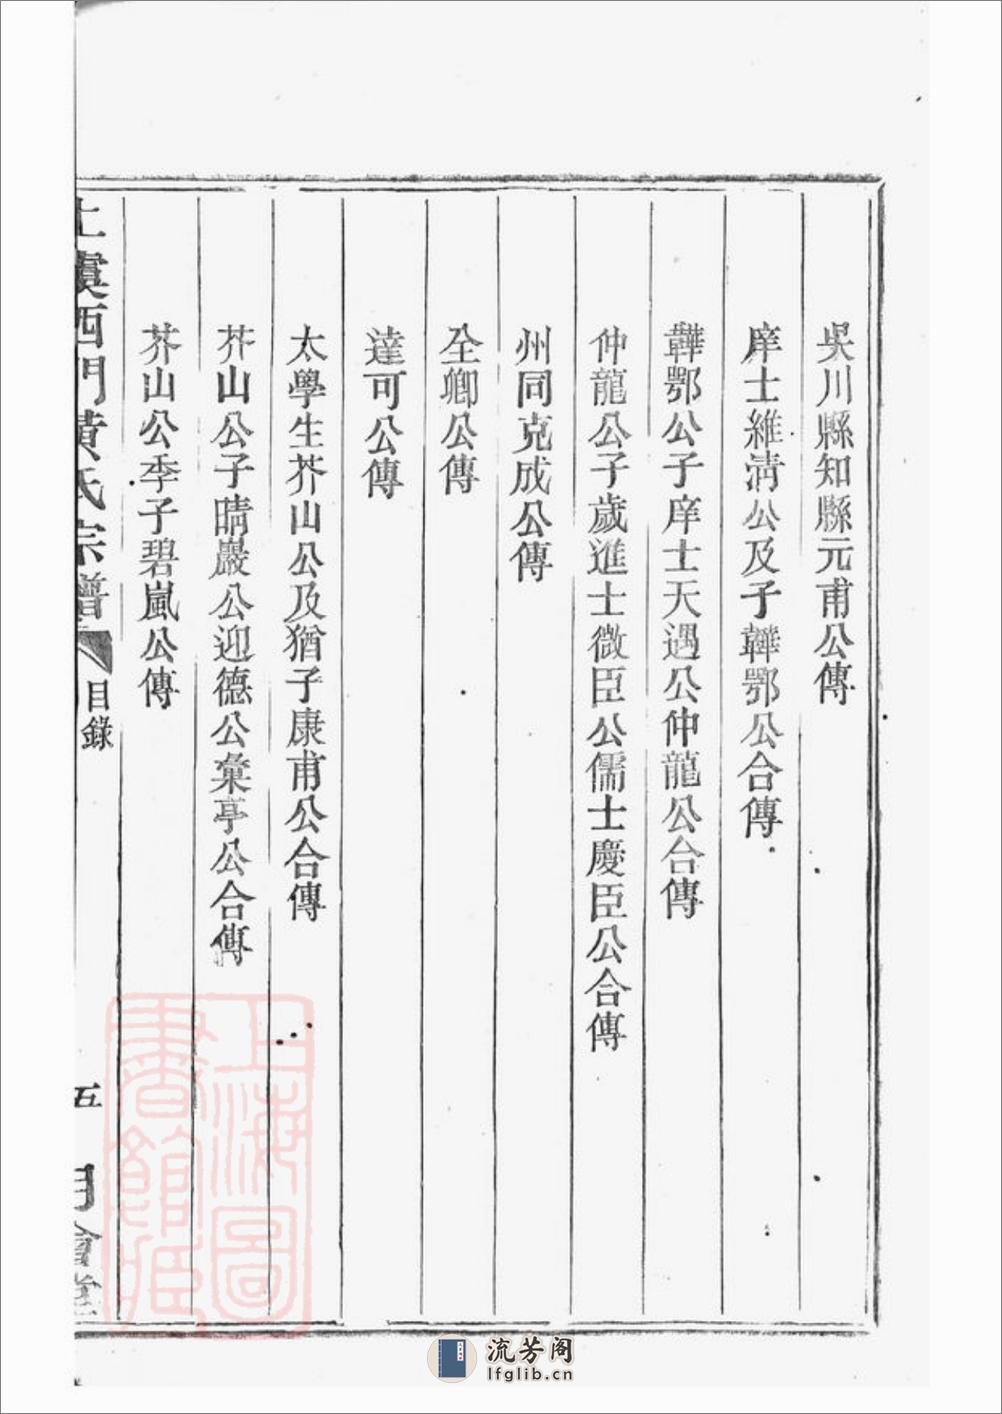 吳川縣知縣元甫公傳
庠士維清公及子韡鄂公合傳
韡鄂公子庠士天遇公仲龍公合傳
仲龍公子歲進士微臣公儒士慶臣公合傳
州同克成公傳
全卿公傳
達可公傳
太學生芥山公及猶子康甫公合傳
芥山公子晴巖公迎德公彙亭公合傳
芥山公季子碧嵐公傳
上虞西門黄氏宗譜 目錄 五 會堂
上海圖書館藏
流芳阁
lfglib.cn